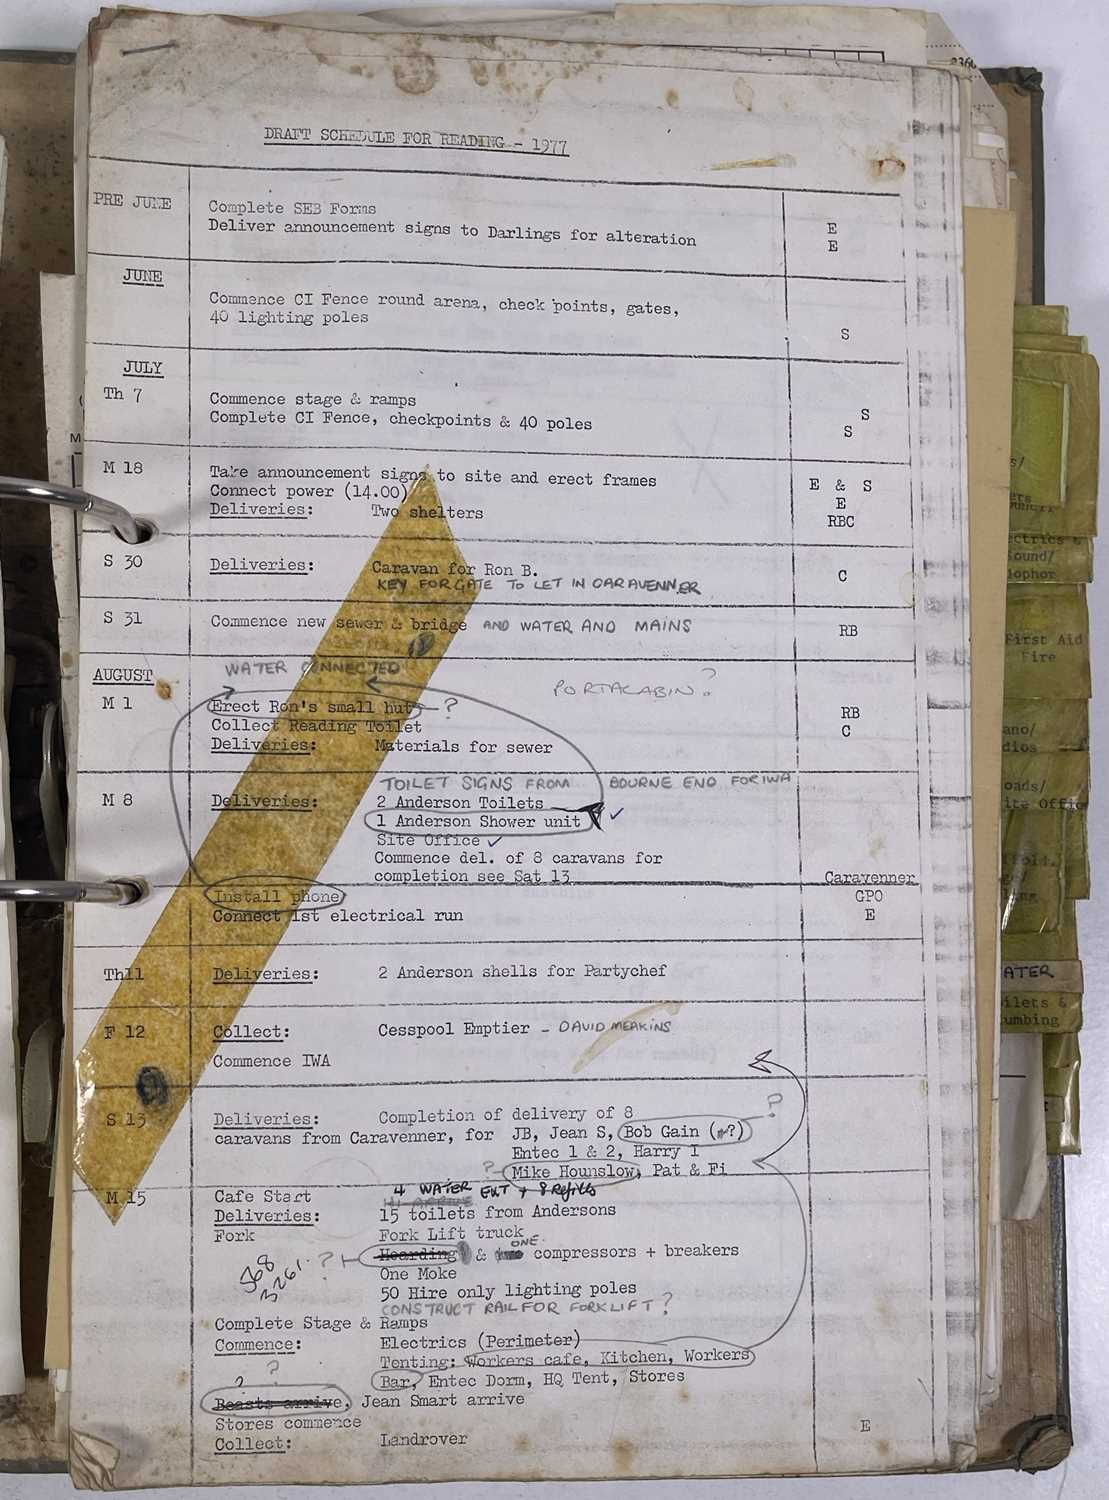 DRAFT SCHEDULE FOR READING - 1977
PRE JUNE
Complete SEB Forms E
Deliver announcement signs to Darlings for alteration E
JUNE
Commence CI Fence round arena, check points, gates,
40 lighting poles S
JULY
Th 7 Commence stage & ramps S
Complete CI Fence, checkpoints & 40 poles S
M 18 Take announcement signs to site and erect frames E & S
Connect power (14.00) E
Deliveries: Two shelters RBC
S 30 Deliveries: Caravan for Ron B. C
KEY FOR GATE TO LET IN CARAVENNER
S 31 Commence new sewer & bridge AND WATER AND MAINS RB
WATER CONNECTED
AUGUST PORTACABIN?
M 1 Erect Ron's small hut ? RB
Collect Reading Toilet C
Deliveries: Materials for sewer
TOILET SIGNS FROM BOURNE END FOR IWA
M 8 Deliveries: 2 Anderson Toilets
1 Anderson Shower unit ✓
Site Office ✓
Commence del. of 8 caravans for
completion see Sat 13 Caravenner
Install phone GPO
Connect 1st electrical run E
Th11 Deliveries: 2 Anderson shells for Partychef
F 12 Collect: Cesspool Emptier - DAVID MEAKINS
Commence IWA
S 13 Deliveries: Completion of delivery of 8 ?
caravans from Caravenner, for JB, Jean S, Bob Gain ( ?)
Entec 1 & 2, Harry I
? Mike Hounslow, Pat & Fi
4 WATER EXT + 8 Refills
M 15 Cafe Start
Deliveries: 15 toilets from Andersons
Fork Fork Lift truck
ONE
568 ? Hoarding & compressors + breakers
3261 One Moke
50 Hire only lighting poles
CONSTRUCT RAIL FOR FORKLIFT?
Complete Stage & Ramps
Commence: Electrics (Perimeter)
Tenting: Workers cafe, Kitchen, Workers
? ? Bar, Entec Dorm, HQ Tent, Stores
Beasts arrive, Jean Smart arrive
Stores commence E
Collect: Landrover
First Aid
Fire
WATER